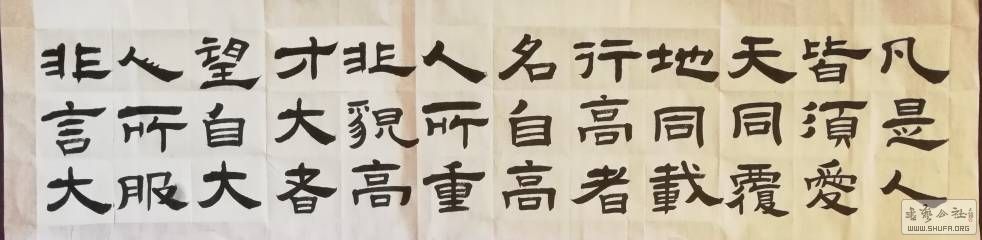 凡是人
皆須愛
天同覆
地同載
行高者
名自高
人所重
非貌高
才大者
望自大
人所服
非言大
WWW.SHUFA.ORG